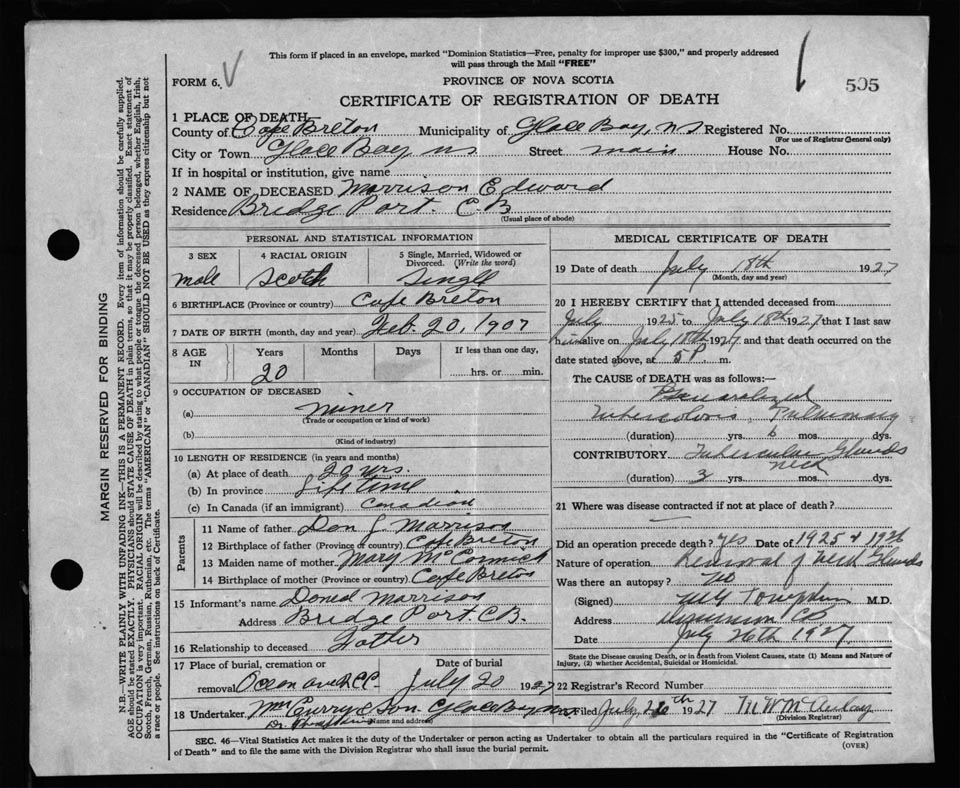 This form if placed in an envelope, marked "Dominion Statistics—Free, penalty for improper use $300," and properly addressed
will pass through the Mail "FREE"
FORM 6.
PROVINCE OF NOVA SCOTIA
505
CERTIFICATE OF REGISTRATION OF DEATH
1 PLACE OF DEATH
County of Cape Breton Municipality of Glace Bay, NS Registered No.
(For use of Registrar General only)
City or Town Glace Bay NS Street Main House No.
If in hospital or institution, give name
2 NAME OF DECEASED Morrison Edward
Residence Bridge Port. C B
(Usual place of abode)
PERSONAL AND STATISTICAL INFORMATION
3 SEX 4 RACIAL ORIGIN 5 Single, Married, Widowed or
Divorced. (Write the word)
Male Scotch Single
6 BIRTHPLACE (Province or country) Cape Breton
7 DATE OF BIRTH (month, day and year) Feb. 20, 1907
8 AGE IN Years Months Days If less than one day,
20 hrs. or min.
9 OCCUPATION OF DECEASED
(a) Miner
(Trade or occupation or kind of work)
(b)
(Kind of industry)
10 LENGTH OF RESIDENCE (in years and months)
(a) At place of death 20 yrs.
(b) In province Life Time
(c) In Canada (if an immigrant) Canadian
Parents
11 Name of father Dan J Morrison
12 Birthplace of father (Province or country) Cape Breton
13 Maiden name of mother Mary McCormick
14 Birthplace of mother (Province or country) Cape Breton
15 Informant's name Morrison
Address Bridge Port C.B.
16 Relationship to deceased Father
17 Place of burial, cremation or Date of burial
removal July 20 1927
18 Undertaker Wm Curry & Son Glace Bay
Name and address
MEDICAL CERTIFICATE OF DEATH
19 Date of death July 18th 1927
(Month, day and year)
20 I HEREBY CERTIFY that I attended deceased from
July 1925 to July 18th 1927 that I last saw
him alive on July 18th 1927 and that death occurred on the
date stated above, at 5 P. m.
The CAUSE of DEATH was as follows:—
Generalized
Tuberculosis Pulmonary
(duration) yrs. 6 mos. dys.
CONTRIBUTORY Tubercular Glands
Neck
(duration) 3 yrs. mos. dys.
21 Where was disease contracted if not at place of death?
Did an operation precede death? Yes Date of 1925 & 1926
Nature of operation Removal of Neck Glands
Was there an autopsy? No
(Signed) M.D.
Address Dominion C.B.
Date July 26th 1927
State the Disease causing Death, or in death from Violent Causes, state (1) Means and Nature of
Injury, (2) whether Accidental, Suicidal or Homicidal.
22 Registrar's Record Number
Filed July 26th 1927
(Division Registrar)
SEC. 46—Vital Statistics Act makes it the duty of the Undertaker or person acting as Undertaker to obtain all the particulars required in the "Certificate of Registration
of Death" and to file the same with the Division Registrar who shall issue the burial permit.
(OVER)
MARGIN RESERVED FOR BINDING
N.B.—WRITE PLAINLY WITH UNFADING INK—THIS IS A PERMANENT RECORD. Every item of information should be carefully supplied.
AGE should be stated EXACTLY. PHYSICIANS should STATE CAUSE OF DEATH in plain terms, so that it may be properly classified. Exact statement of
OCCUPATION is very important. RACIAL ORIGIN will be described by stating to what people or tongue the deceased person belonged, whether English, Irish,
Scotch, French, German, Russian, Ruthenian, etc. The terms "AMERICAN" or "CANADIAN" SHOULD NOT BE USED as they express citizenship but not
a race or people. See instructions on back of Certificate.